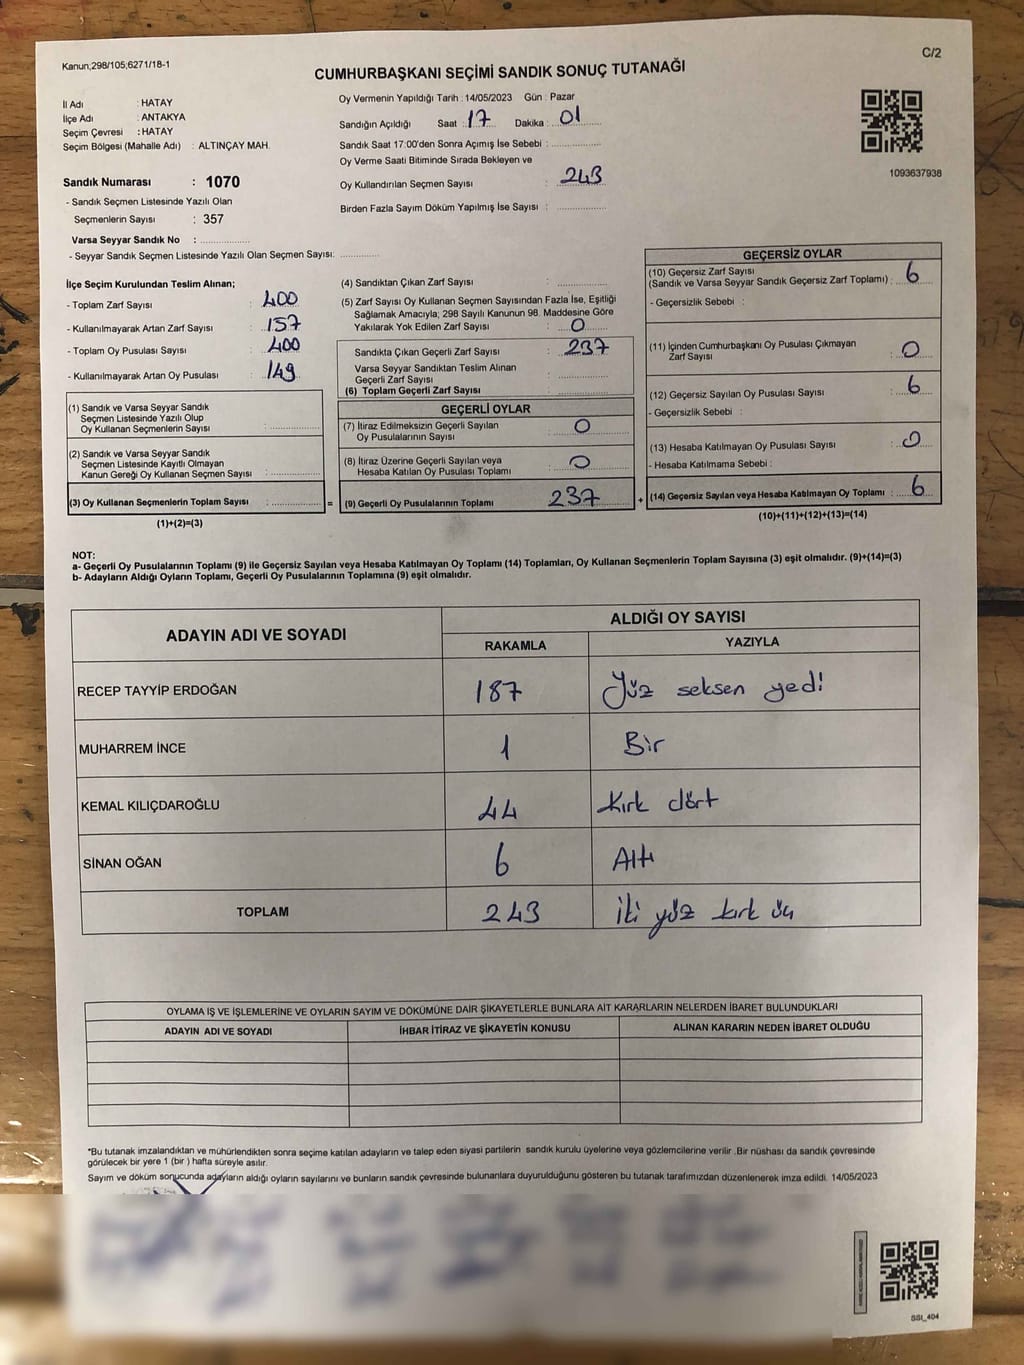 Kanun;298/105;6271/18-1
C/2
CUMHURBAŞKANI SEÇİMİ SANDIK SONUÇ TUTANAĞI
İl Adı : HATAY
İlçe Adı : ANTAKYA
Seçim Çevresi : HATAY
Seçim Bölgesi (Mahalle Adı) : ALTINÇAY MAH.
Sandık Numarası : 1070
- Sandık Seçmen Listesinde Yazılı Olan
Seçmenlerin Sayısı : 357
Varsa Seyyar Sandık No :
- Seyyar Sandık Seçmen Listesinde Yazılı Olan Seçmen Sayısı:
Oy Vermenin Yapıldığı Tarih : 14/05/2023 Gün : Pazar
Sandığın Açıldığı Saat : 17 Dakika : 01
Sandık Saat 17:00'den Sonra Açımış İse Sebebi :
Oy Verme Saati Bitiminde Sırada Bekleyen ve
Oy Kullandırılan Seçmen Sayısı : 243
Birden Fazla Sayım Döküm Yapılmış İse Sayısı :
1093637938
İlçe Seçim Kurulundan Teslim Alınan;
- Toplam Zarf Sayısı : 400
- Kullanılmayarak Artan Zarf Sayısı : 157
- Toplam Oy Pusulası Sayısı : 400
- Kullanılmayarak Artan Oy Pusulası : 149
(1) Sandık ve Varsa Seyyar Sandık
Seçmen Listesinde Yazılı Olup
Oy Kullanan Seçmenlerin Sayısı :
(2) Sandık ve Varsa Seyyar Sandık
Seçmen Listesinde Kayıtlı Olmayan
Kanun Gereği Oy Kullanan Seçmen Sayısı :
(3) Oy Kullanan Seçmenlerin Toplam Sayısı : =
(1)+(2)=(3)
(4) Sandıktan Çıkan Zarf Sayısı :
(5) Zarf Sayısı Oy Kullanan Seçmen Sayısından Fazla İse, Eşitliği
Sağlamak Amacıyla; 298 Sayılı Kanunun 98. Maddesine Göre
Yakılarak Yok Edilen Zarf Sayısı : 0
Sandıkta Çıkan Geçerli Zarf Sayısı : 237
Varsa Seyyar Sandıktan Teslim Alınan
Geçerli Zarf Sayısı :
(6) Toplam Geçerli Zarf Sayısı :
GEÇERLİ OYLAR
(7) İtiraz Edilmeksizin Geçerli Sayılan
Oy Pusulalarının Sayısı : 0
(8) İtiraz Üzerine Geçerli Sayılan veya
Hesaba Katılan Oy Pusulası Toplamı : 0
(9) Geçerli Oy Pusulalarının Toplamı : 237 +
GEÇERSİZ OYLAR
(10) Geçersiz Zarf Sayısı
(Sandık ve Varsa Seyyar Sandık Geçersiz Zarf Toplamı) : 6
- Geçersizlik Sebebi :
(11) İçinden Cumhurbaşkanı Oy Pusulası Çıkmayan
Zarf Sayısı : 0
(12) Geçersiz Sayılan Oy Pusulası Sayısı : 6
- Geçersizlik Sebebi :
(13) Hesaba Katılmayan Oy Pusulası Sayısı : 0
- Hesaba Katılmama Sebebi :
(14) Geçersiz Sayılan veya Hesaba Katılmayan Oy Toplamı : 6
(10)+(11)+(12)+(13)=(14)
NOT:
a- Geçerli Oy Pusulalarının Toplamı (9) ile Geçersiz Sayılan veya Hesaba Katılmayan Oy Toplamı (14) Toplamları, Oy Kullanan Seçmenlerin Toplam Sayısına (3) eşit olmalıdır. (9)+(14)=(3)
b- Adayların Aldığı Oyların Toplamı, Geçerli Oy Pusulalarının Toplamına (9) eşit olmalıdır.
ADAYIN ADI VE SOYADI
ALDIĞI OY SAYISI
RAKAMLA YAZIYLA
RECEP TAYYİP ERDOĞAN 187 Yüz seksen yedi
MUHARREM İNCE 1 Bir
KEMAL KILIÇDAROĞLU 44 Kırk dört
SİNAN OĞAN 6 Altı
TOPLAM 243 İki yüz kırk üç
OYLAMA İŞ VE İŞLEMLERİNE VE OYLARIN SAYIM VE DÖKÜMÜNE DAİR ŞİKAYETLERLE BUNLARA AİT KARARLARIN NELERDEN İBARET BULUNDUKLARI
ADAYIN ADI VE SOYADI İHBAR İTİRAZ VE ŞİKAYETİN KONUSU ALINAN KARARIN NEDEN İBARET OLDUĞU
*Bu tutanak imzalandıktan ve mühürlendikten sonra seçime katılan adayların ve talep eden siyasi partilerin sandık kurulu üyelerine veya gözlemcilerine verilir .Bir nüshası da sandık çevresinde
görülecek bir yere 1 (bir ) hafta süreyle asılır.
Sayım ve döküm sonucunda adayların aldığı oyların sayılarını ve bunların sandık çevresinde bulunanlara duyurulduğunu gösteren bu tutanak tarafımızdan düzenlenerek imza edildi. 14/05/2023
SSI_404